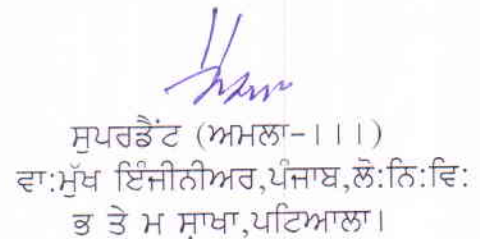 ਸੁਪਰਡੈਂਟ (ਅਮਲਾ-।।।)
ਵਾ:ਮੁੱਖ ਇੰਜੀਨੀਅਰ,ਪੰਜਾਬ,ਲੋ:ਨਿ:ਵਿ:
ਭ ਤੇ ਮ ਸ਼ਾਖਾ,ਪਟਿਆਲਾ।